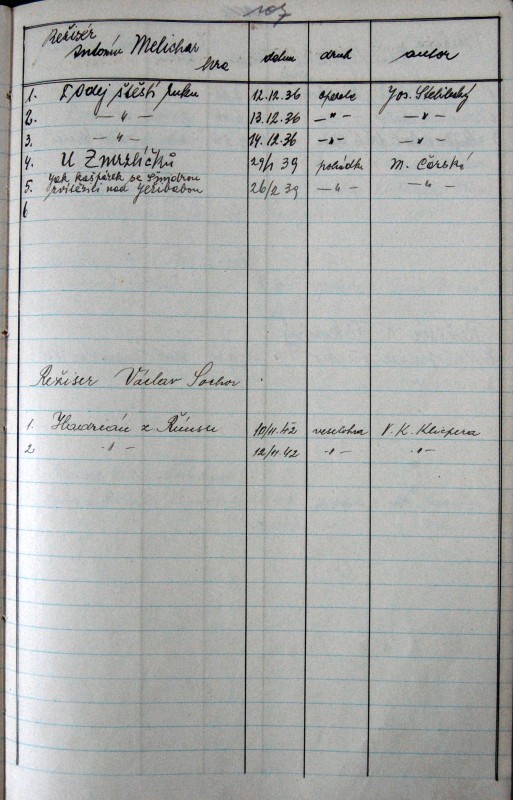 107
Režizér
Antonín Melichar
hra datum druh autor
1. Podej štěstí ruku 12.12.36 opereta Jos. Stelibský
2. — " — 13.12.36 — " — — " —
3. — " — 14.12.36 — " — — " —
4. U Zmrzlíčků 29/1 39 pohádka M. Čárská
5. Jak kašpárek se Šmidrou
zvítězili nad Jezibabou 26/2 39 — " — — " —
6
Režiser Václav Sochor
1. Hadrián z Římsu 10/11.42 veselohra V. K. Klicpera
2 - " - 12/11.42 - " - - " -